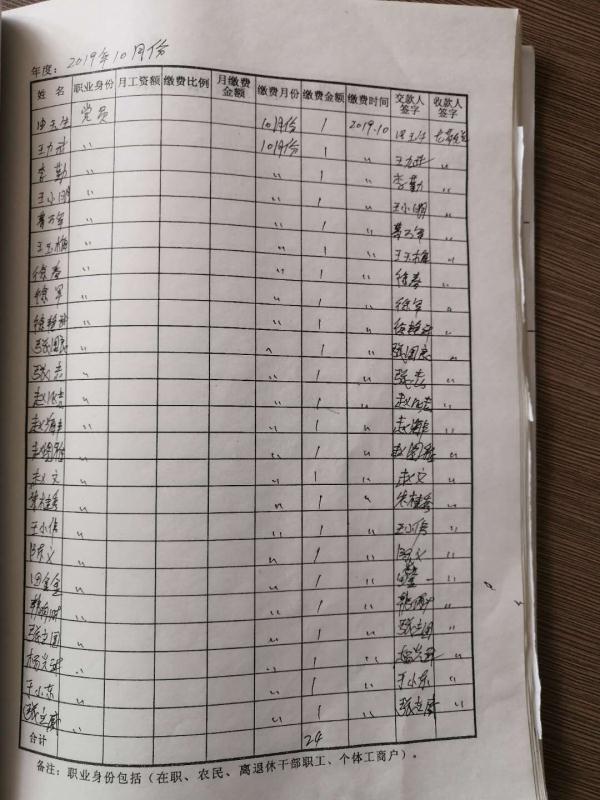 年度：2019年10月份
姓 名 职业身份 月工资额 缴费比例 月缴费金额 缴费月份 缴费金额 缴费时间 交款人签字 收款人签字
党员 10月份 1 2019.10
王力进 〃 10月份 1 〃 王力进 〃
李勤 〃 〃 1 〃 李勤 〃
王小明 〃 〃 1 〃 王小明 〃
〃 〃 1 〃 〃
王玉梅 〃 〃 1 〃 王玉梅 〃
徐春 〃 〃 1 〃 徐春 〃
徐军 〃 〃 1 〃 徐军 〃
〃 〃 1 〃 〃
张国良 〃 〃 1 〃 张国良 〃
张志 〃 〃 1 〃 张志 〃
〃 〃 1 〃 〃
赵海丰 〃 〃 1 〃 赵海丰 〃
〃 1 〃 〃
赵文 〃 1 〃 赵文 〃
朱桂香 〃 1 〃 朱桂香 〃
王小伟 〃 1 〃 王小伟 〃
〃 1 〃 〃
田金金 〃 1 〃 〃
〃 1 〃 〃
张立国 〃 1 〃 张立国 〃
〃 1 〃 〃
于小东 〃 1 〃 于小东 〃
张立威 〃 1 〃 张立威 〃
合计 24
备注：职业身份包括（在职、农民、离退休干部职工、个体工商户）。